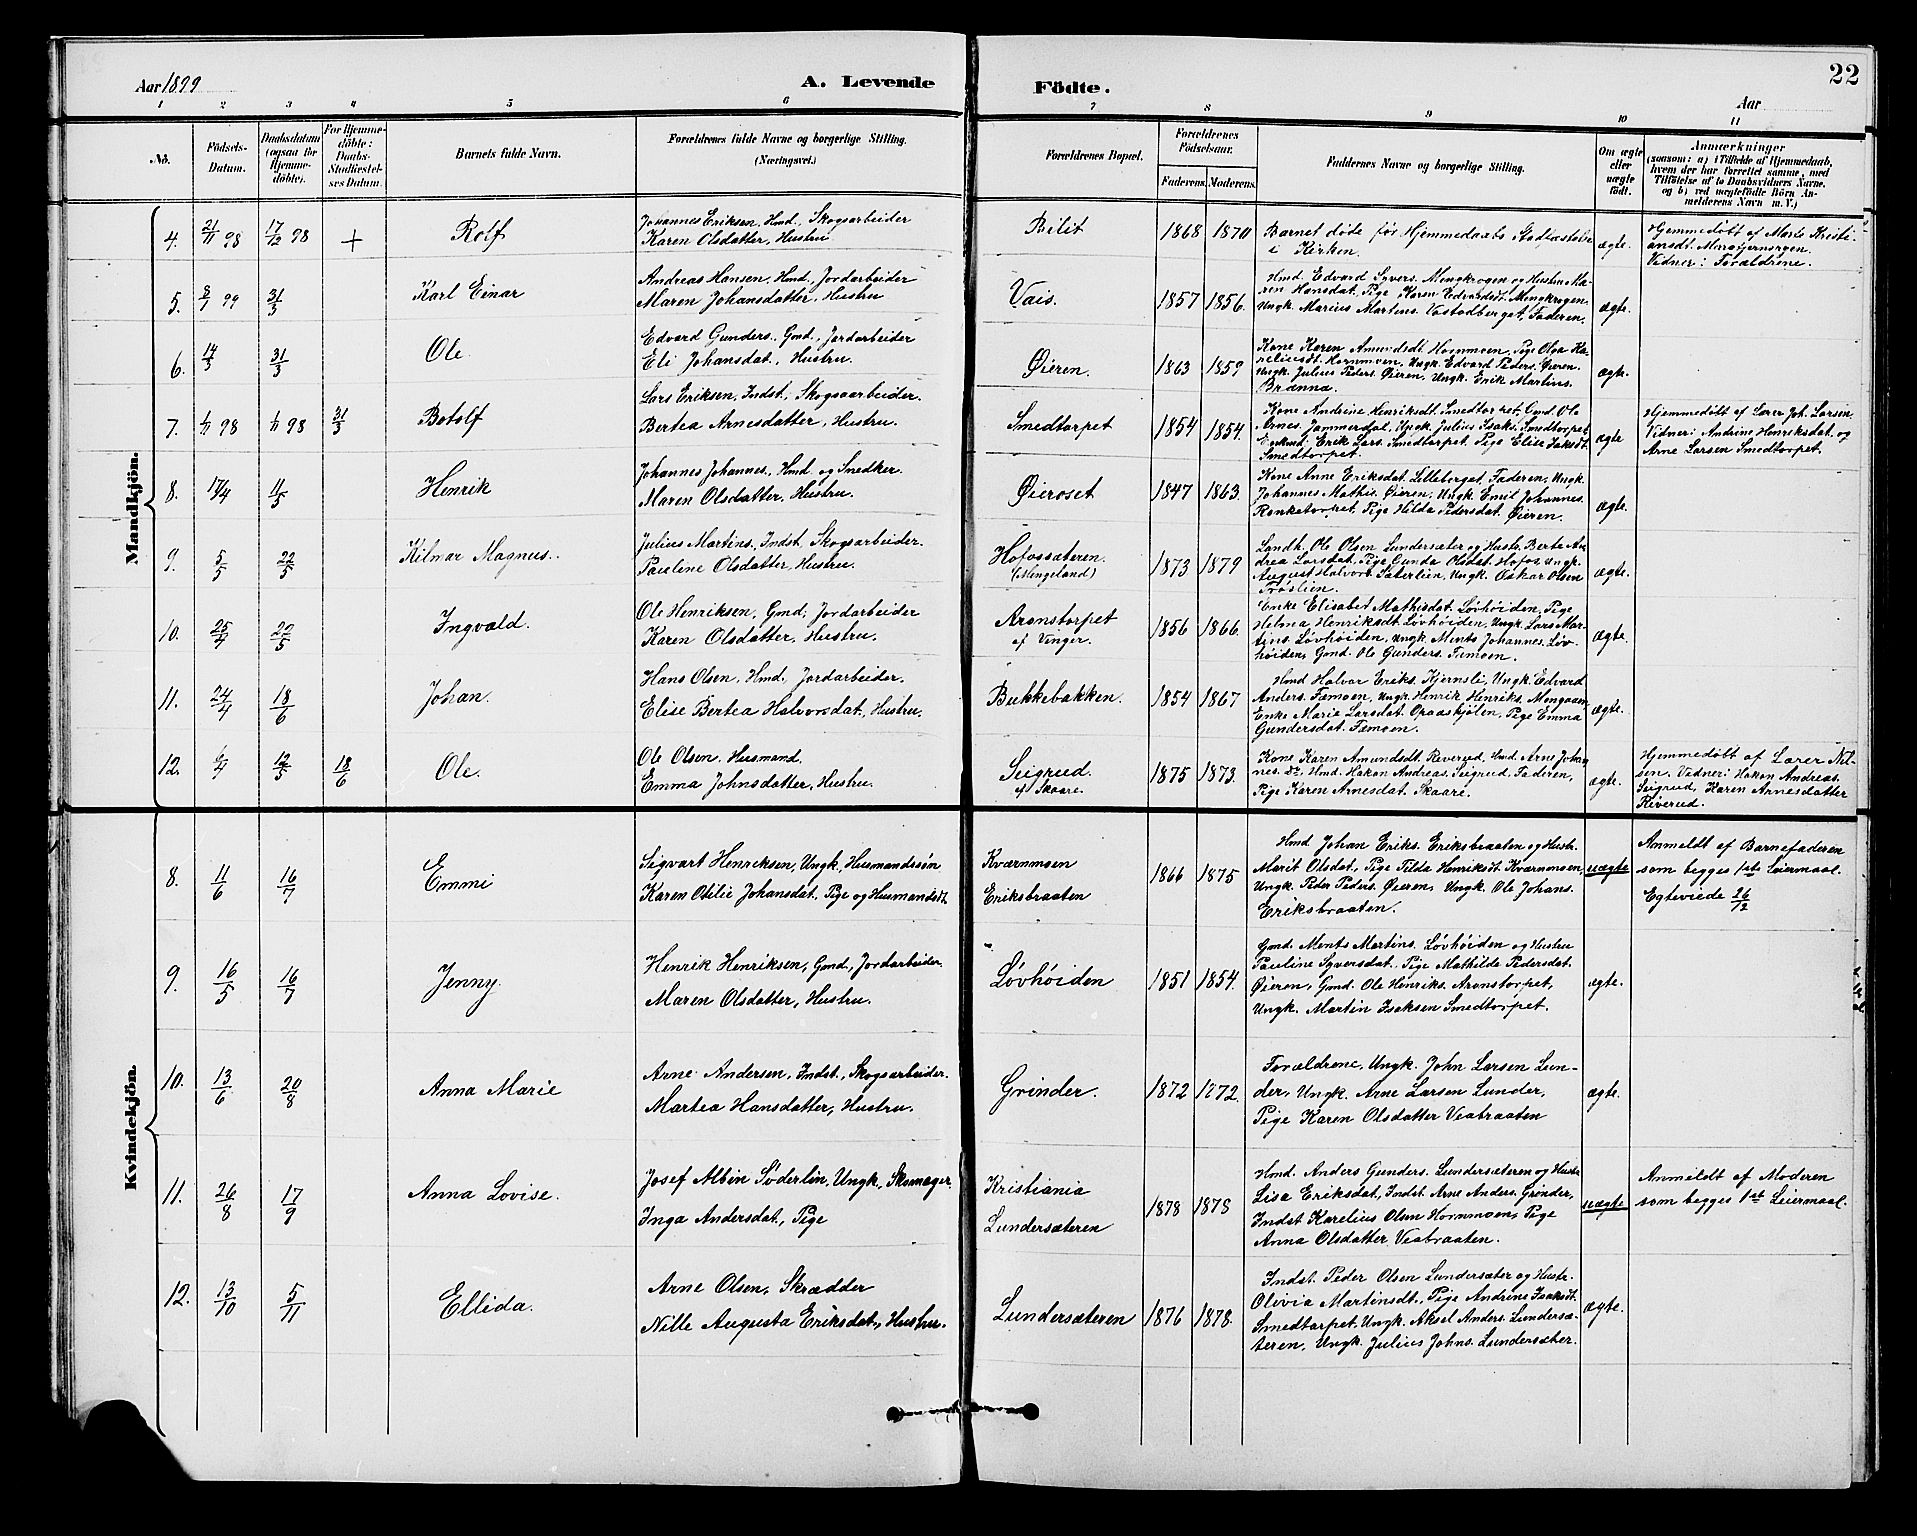 22
Aar 1899
A. Levende
Födte.
Aar
1 2 3 4 5 6 7 8 9 10 11
No.
Födsels-
Datum.
Daabsdatum
(ogsaa for
Hjemme-
döbte).
For Hjemme-
döbte:
Daabs-
Stadfæstel-
ses Datum.
Barnets fulde Navn.
Forældrenes fulde Navne og borgerlige Stilling.
(Næringsvei.)
Forældrenes Bopæl.
Forældrenes
Födselsaar.
Faderens. Moderens.
Faddernes Navne og borgerlige Stilling.
Om ægte
eller
uægte
födt.
Anmærkninger
(saasom: a) i Tilfælde af Hjemmedaab,
hvem der har forrettet samme, med
Tilföielse af to Daabsvidners Navne,
og b) ved uægtefödte Börn An-
melderens Navn m. V.)
Mandkjön.
4. 21/11 98 17/12 98 + Rolf
Johannes Eriksen, Hmd., Skogsarbeider
Karen Olsdatter, Hustru
Bilit 1868 1870
Barnet døde før Hjemmedaabs Stadfæstelse
i Kirken.
ægte.
Hjemmedøbt af Marte Kristi-
ansdt.
Vidner: Forældrene.
5. 8/1 99 31/3 Karl Einar
Andreas Hansen, Hmd., Jordarbeider
Maren Johansdatter, Hustru
Vais. 1857 1856.
Hmd. Edvard Syvers. Mengkrogen og Hustru Ma-
ren Hansdat. Pige Karen Edvardsdt. Mengkrogen,
Ungk. Marius Martins. Vestadberget, Faderen.
ægte.
6. 14/3 31/3 Ole
Edvard Gunders., Gmd., Jordarbeider
Eli Johansdat., Hustru.
Øieren. 1863 1859
Kone Karen Amundsdt. Hornmoen, Pige Olga Ka-
reliusdt. Hornmoen, Ungk. Edvard Peders. Øieren.
Ungk. Julius Peders. Øieren, Ungk. Erik Martins.
Brænna.
ægte.
7. 1/11 98 1/11 98 31/3 Botolf
Lars Eriksen, Indst., Skogsaarbeider.
Bertea Arnesdatter, Hustru.
Smedtorpet 1854 1854.
Kone Andrine Henriksdt. Smedtorpet, Gmd. Ole
Arnes. Jammerdal, Ungk. Julius Isaks. Smedtorpet
Erik Lars. Smedtorpet, Pige Elise Isaksdt.
Smedtorpet.
ægte
Hjemmedøbt af Lærer Joh. Larsen.
Vidner: Andrine Henriksdat. og
Arne Larsen Smedtorpet.
8. 17/4 11/5 Henrik
Johannes Johannes., Hmd. og Snedker.
Maren Olsdatter, Hustru.
Øieroset 1847 1863.
Kone Anne Eriksdat. Lilleberget, Faderen, Ungk.
Johannes Mathis. Øieren, Ungk. Emil Johannes.
Ronketorpet, Pige Hilda Pedersdat. Øieren.
ægte.
9. 5/5 22/5 Hilmar Magnus.
Julius Martins., Indst. Skogsarbeider.
Pauline Olsdatter, Hustru.
Hofossæteren.
(Mengeland)
1873 1879
Landh. Ole Olsen Lundersæter og Hustr. Berte An-
drea Larsdat. Pige Gunda Olsdat. Hofos, Ungk.
August Halvors. Säterlien, Ungk. Oskar Olsen
Tröslien.
ægte.
10. 25/4 22/5 Ingvald.
Ole Henriksen, Gmd., Jordarbeider
Karen Olsdatter, Hustru.
Aronstorpet
af Vinger.
1856 1866.
Enke Elisabet Mathisdat. Løvhöiden, Pige
Helma Henriksdt. Løvhöiden, Ungk. Lars Mar-
tins. Løvhöiden, Ungk. Ments Johannes. Løv-
höiden, Gmd. Ole Gunders. Tæmoen.
ægte.
11. 24/4 18/6 Johan.
Hans Olsen, Hmd., Jordarbeider.
Elise Bertea Halvorsdat., Hustru.
Bukkebakken. 1854 1867
Hmd. Halvor Eriks. Kjernsli, Ungk. Edvard
Anders. Tæmoen, Ungk. Henrik Henriks. Mengaaen,
Enke Marie Larsdat. Opaaskjölen, Pige Emma
Gundersdat. Tæmoen.
ægte.
12. 6/4 12/5 18/6 Ole.
Ole Olsen, Husmand.
Emma Johnsdatter, Hustru.
Seigrud.
af Skaare.
1875 1873.
Kone Karen Amundsdt. Reverud, Hmd. Arne Johan-
nes. Do., Hmd. Hakon Andreas. Seigrud, Faderen,
Pige Karen Arnesdat. Skaare.
ægte.
Hjemmedøbt af Lærer Nil-
sen. Vidner: Hakon Andreas.
Seigrud, Karen Arnesdatter
Riverud.
Kvindekjön.
8. 11/6 16/7 Emmi
Sigvart Henriksen, Ungk., Husmandssøn
Karen Otilie Johansdat., Pige og Husmandsdt.
Kværnmoen
Eriksbraaten
1866 1875
Hmd. Johan Eriks. Eriksbraaten og Hustr.
Marit Olsdat., Pige Tilda Henriksdt. Kværnmoen,
Ungk. Peder Peders. Øieren, Ungk. Ole Johans.
Eriksbraaten.
uægte
Anmeldt af Barnefaderen
som begges 1ste Leiermaal.
Egteviede 26/12
9. 16/5 16/7 Jenny.
Henrik Henriksen, Gmd., Jordarbeider.
Maren Olsdatter, Hustru.
Løvhöiden 1851 1854.
Gmd. Ments Martins. Løvhöiden og Hustru
Pauline Syversdat., Pige Mathilde Pedersdat.
Øieren, Gmd. Ole Henriks. Aronstorpet,
Ungk. Martin Isaksen Smedtorpet.
ægte.
10. 13/6 20/8 Anna Marie
Arne Andersen, Indst., Skogsarbeider.
Martea Hansdatter, Hustru.
Grinder. 1872 1872.
Forældrene, Ungk. John Larsen Lun-
der, Ungk. Arne Larsen Lunder,
Pige Karen Olsdatter Veabraaten
ægte.
11. 26/8 17/9 Anna Lovise.
Josef Albin Söderlin, Ungk., Skomager.
Inga Andersdat., Pige
Kristiania
Lundersæteren
1878 1878
Hmd. Anders Gunders. Lundersæteren og Hustr.
Lisa Eriksdat., Indst. Arne Anders. Grinder,
Indst. Karelius Olsen Hornmoen, Pige
Anna Olsdatter Veabraaten.
uægte
Anmeldt af Moderen
som begges 1st Leiermaal.
12. 13/10 5/11 Ellida.
Arne Olsen, Skrædder
Nille Augusta Eriksdat., Hustru.
Lundersæteren 1876 1878.
Indst. Peder Olsen Lundersæter og Hustr.
Olivia Martinsdt., Pige Andrine Isaksdt.
Smedtorpet, Ungk. Aksel Anders. Lundersæ-
teren, Ungk. Julius Johns. Lundersæter.
ægte.